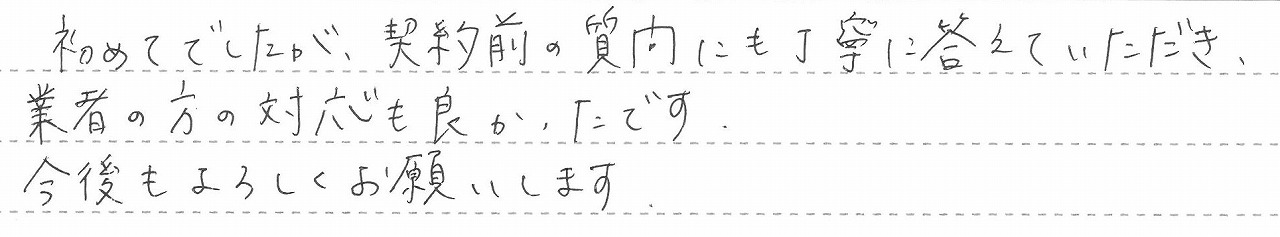 初めてでしたが、契約前の質問にも丁寧に答えていただき、
業者の方の対応も良かったです.
今後もよろしくお願いします.